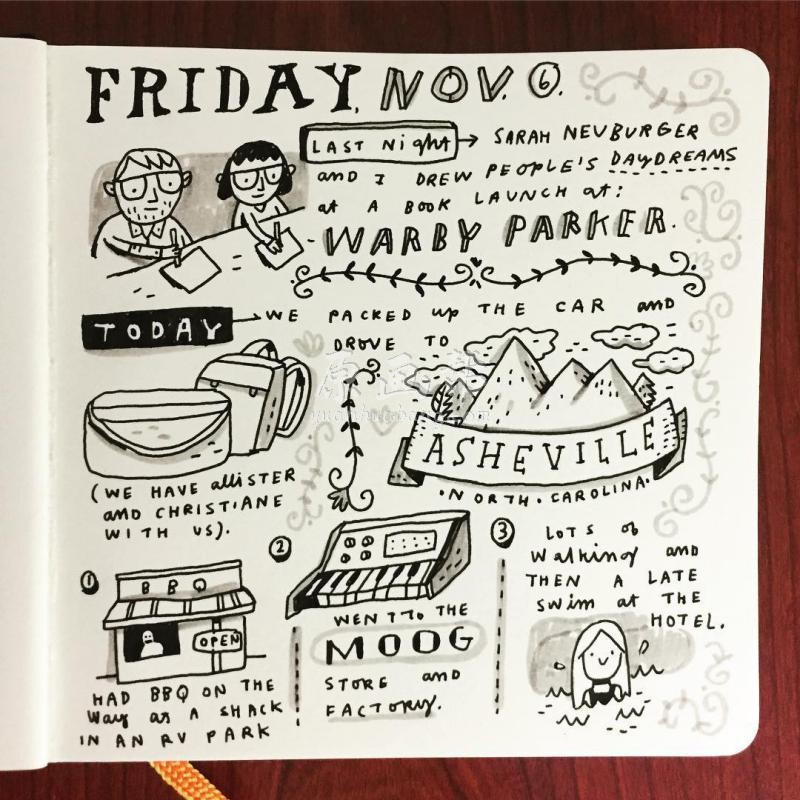 FRIDAY, NOV. 6.
LAST Night → SARAH NEUBURGER
AND I DREW PEOPLE'S DAYDREAMS
at A BOOK LAUNCH at:
WARBY PARKER.
TODAY → WE PACKED up THE CAR and
DROVE TO
ASHEVILLE
• NORTH • CAROLINA •
(WE HAVE allISTER
AND CHRISTIANE
WITH US).
①
BBQ
OPEN
HAD BBQ ON THE
Way at A SHACK
IN AN RV PARK
②
WENT To THE
MOOG
STORE and
FACTORY.
③
LOTS of
Walking and
THEN A LATE
SWIM at THE
HOTEL.